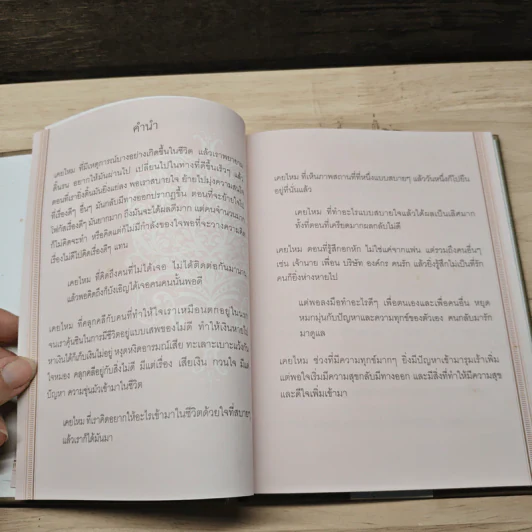 คำนำ
เคยไหม ที่มีเหตุการณ์บางอย่างเกิดขึ้นในชีวิต แล้วเราพยายาม
ดิ้นรน อยากให้มันผ่านไป เปลี่ยนไปในทางที่ดีขึ้นเร็วๆ แต่
ตอนที่เรายิ่งดิ้นมันยิ่งแย่ลง พอเราสบายใจ ย้ายไปมุ่งความสนใจ
ที่เรื่องดีๆ อื่นๆ มันกลับมีทางออกปรากฏขึ้น ตอนที่จะย้ายไป
โฟกัสเรื่องดีๆ มันยากมาก ถึงมันจะได้ผลดีมาก แต่คนจำนวนมาก
ก็ไม่คิดจะทำ หรือคิดแต่ก็ไม่มีกำลังของใจพอที่จะวางความคิด
เรื่องไม่ดีไปคิดเรื่องดีๆ แทน
เคยไหม ที่คิดถึงคนที่ไม่ได้เจอ ไม่ได้ติดต่อกันมานาน
แล้วพอคิดถึงก็บังเอิญได้เจอคนคนนั้นพอดี
เคยไหม ที่คลุกคลีกับคนที่ทำให้เราเหมือนตกอยู่ในวงจร
จนเราคุ้นชินในการมีชีวิตอยู่แบบเสพของไม่ดี ทำให้เงินหายไป
หาเงินได้ก็เก็บเงินไม่อยู่ หงุดหงิดอารมณ์เสีย ทะเลาะเบาะแว้งกัน
ใจหมอง คลุกคลีอยู่กับสิ่งไม่ดี มีแต่เรื่อง เสียเงิน กวนใจ มีแต่
ปัญหา ความขุ่นมัวเข้ามาในชีวิต
เคยไหม ที่เราคิดอยากให้อะไรเข้ามาในชีวิตด้วยใจที่สบายๆ
แล้วเราก็ได้มันมา
เคยไหม ที่เห็นภาพสถานที่ที่หนึ่งแบบสบายๆ แล้ววันหนึ่งก็ไปยืน
อยู่ที่นั่นแล้ว
เคยไหม ที่ทำอะไรแบบสบายใจแล้วได้ผลเป็นเลิศมาก
ทั้งที่ตอนที่เครียดมากผลกลับไม่ดี
เคยไหม ตอนที่รู้สึกอกหัก ไม่ใช่แค่จากแฟน แต่รวมถึงคนอื่นๆ
เช่น เจ้านาย เพื่อน บริษัท องค์กร คนรัก แล้วยิ่งรู้สึกไม่เป็นที่รัก
คนก็ยิ่งห่างหายไป
แต่พอลงมือทำอะไรดีๆ เพื่อตนเองและเพื่อคนอื่น หยุด
หมกมุ่นกับปัญหาและความทุกข์ของตัวเอง คนกลับมารัก
มาดูแล
เคยไหม ช่วงที่มีความทุกข์มากๆ ยิ่งมีปัญหาเข้ามารุมเร้าเพิ่ม
แต่พอใจเริ่มมีความสุขกลับมีทางออก และมีสิ่งที่ทำให้มีความสุข
และดีใจเพิ่มเข้ามา